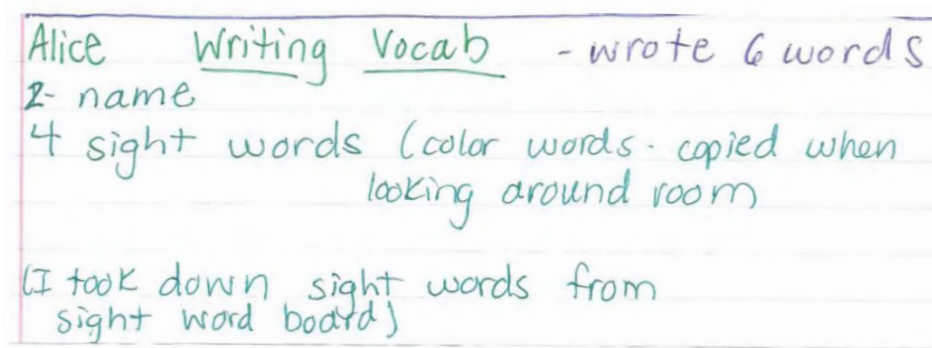 Alice Writing Vocab - wrote 6 words
2- name
4 sight words (color words - copied when
looking around room
(I took down sight words from
sight word board)